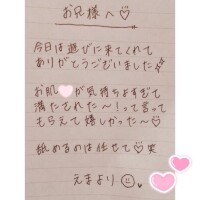 お兄様へ♡
今日は遊びに来てくれて
ありがとうございました
お肌 が気持ちよすぎて
満たされた〜！って言って
もらえて嬉しかった〜♡
舐めるのは任せて♡笑
えまより